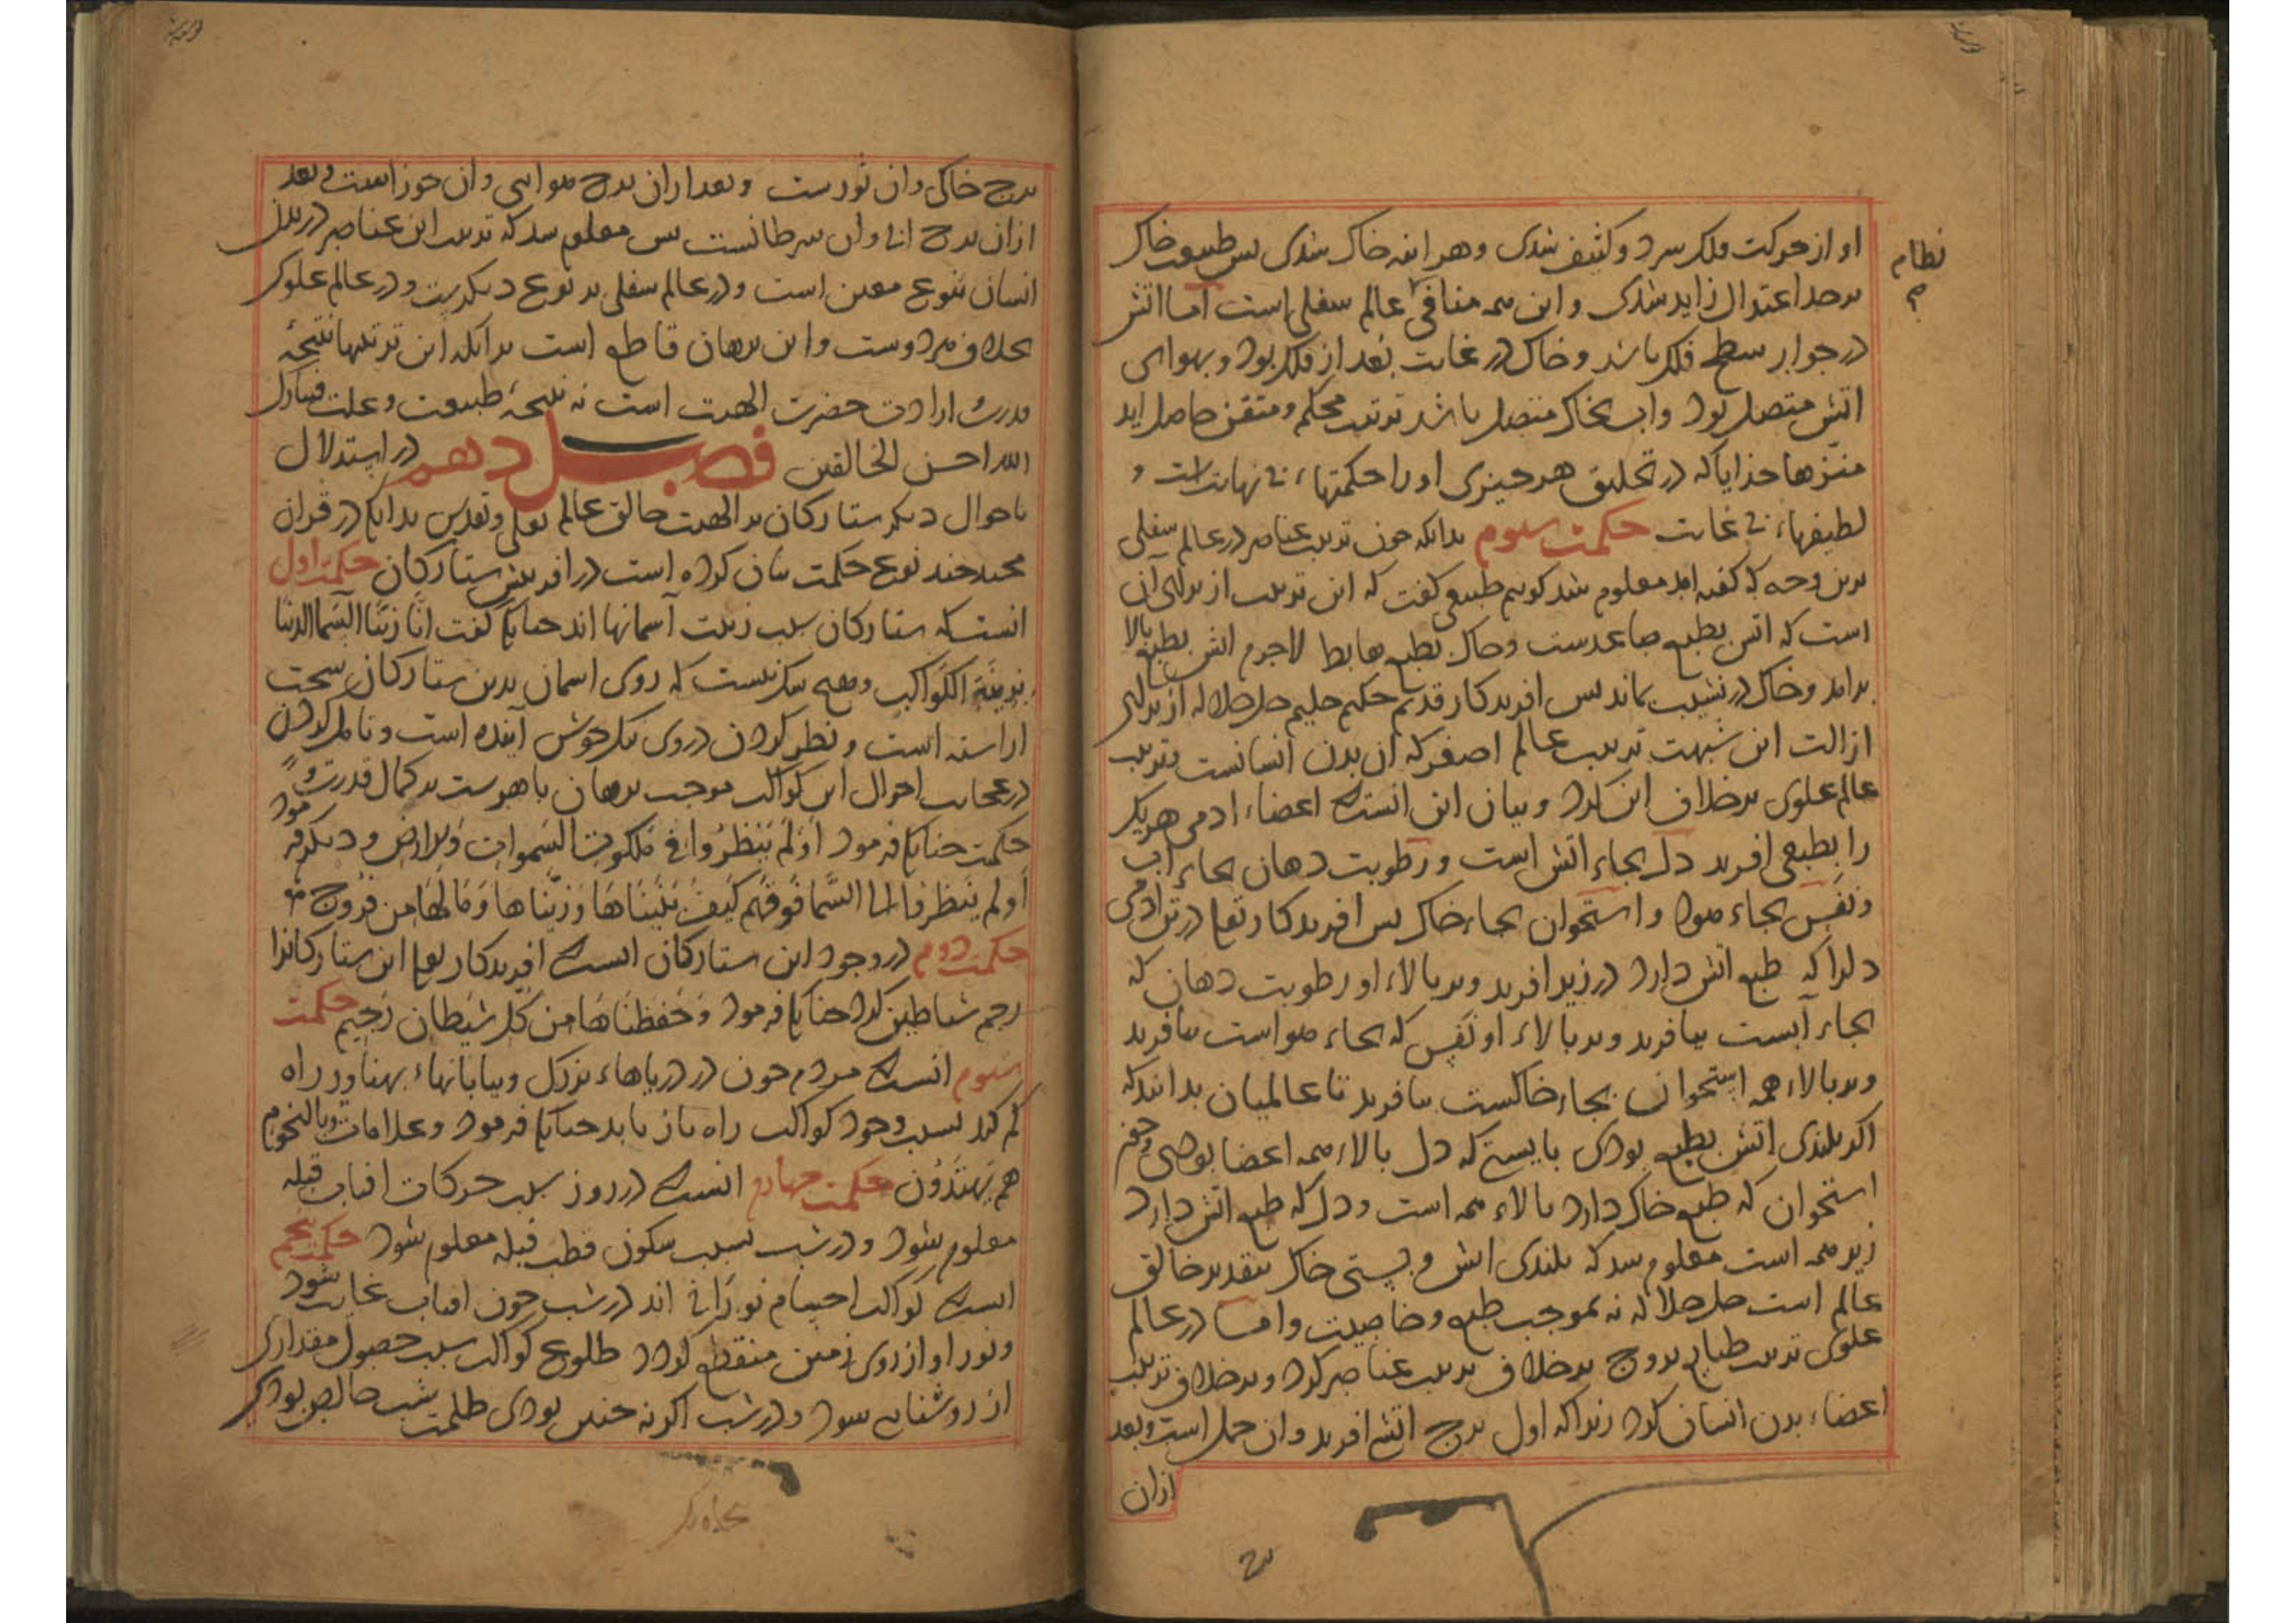 او از حرکت فلک سرد و کثیف شدی و هر اینه خاک شدی پس طبیعت خاک
نظام
بر حد اعتدال زاید شدی و این همه منافی عالم سفلی است اما اتش
در جوار سطح فلک باشد و خاک در غایت بعد از فلک بود و بهوای
اتش متصل بود و اب بخاک متصل باشد ترتیب محکم و متقن حاصل اید
منزها خدایا که در تخلیق هر چیزی او را حکمتهاء بی نهایت است و
لطیفهاء بی غایت حکمت سیوم بدانکه چون ترتیب عناصر در عالم سفلی
برین وجه که گفته امد معلوم شد کوییم طبیعی گفت که این ترتیب از برای آن
است که اتش بطبع صاعدست و خاک بطبع هابط لاجرم اتش بطبع بالا
برامد و خاک در نشیب بماند پس افریدکار قدیم حکیم حلیم جل جلاله از برای
ازالت این شبهت ترتیب عالم اصغر که آن بدن انسانست و ترتیب
عالم علوی بر خلاف این کرد و بیان این انست که اعضاء ادمی هر یک
را بطبعی افرید دل بجاء اتش است و رطوبت دهان بجاء اب
و نفس بجاء هوا و استخوان بجاء خاک پس افریدکار تعالی در تن ادمی
دلرا که طبع اتش دارد در زیر افرید و بر بالاء او رطوبت دهان که
بجاء آبست بیافرید و بر بالاء او نفس که بجاء هواست بیافرید
و بر بالاء همه استخوان بجاء خاکست بیافرید تا عالمیان بدانند که
اکر بلندی اتش بطبع بودی بایستی که دل بالاء همه اعضا بودی و چون
استخوان که طبع خاک دارد بالاء همه است و دل که طبع اتش دارد
زیر همه است معلوم شد که بلندی اتش و پستی خاک بتقدیر خالق
عالم است جل جلاله نه بموجب طبع و خاصیت و اما در عالم
علوی ترتیب طبایع بروج بر خلاف ترتیب عناصر کرد و بر خلاف ترتیب
اعضاء بدن انسان کرد زیرا که اول برج اتشی افرید و ان حمل است و بعد
ازان
برج خاکی و ان ثورست و بعد ازان برج هوایی و ان جوزاست و بعد
ازان برج ابی و ان سرطانست پس معلوم شد که ترتیب این عناصر در بدن
انسان بنوع معین است و در عالم سفلی بر نوع دیکرست و در عالم علوی
بخلاف هر دوست و این برهان قاطع است بدانکه این ترتیبها نتیجهٔ
قدرت و ارادت حضرت الهیت است نه نتیجهٔ طبیعت و علت فتبارک
الله احسن الخالقین فصل دهم در استدلال
باحوال دیکر ستارکان بر الهیت خالق عالم تعالی و تقدس بدانکه در قران
مجید چند نوع حکمت بیان کرده است در افرینش ستارکان حکمت اول
انست که ستارکان سبب زینت آسمانها اند چنانکه گفت انا زینا السماء الدنیا
بزینة الکواکب و هیچ شک نیست که روی اسمان بدین ستارکان سخت
اراسته است و نظر کردن در روی نیکو خوش آینده است و تامل کردن
در عجایب احوال این کواکب موجب برهان باهرست بر کمال قدرت و
حکمت چنانکه فرمود اولم ینظروا فی ملکوت السموات والارض و دیکر فرمود
اولم ینظروا الی السماء فوقهم کیف بنیناها و زیناها و مالها من فروج
حکمت دوم در وجود این ستارکان انست که افریدکار تعالی این ستارکانرا
رجم شیاطین کرد چنانکه فرمود و حفظناها من کل شیطان رجیم حکمت
سیوم انست که مردم چون در دریاهاء بزرک و بیابانهاء پهناور راه
کم کند بسبب وجود کواکب راه باز یابد چنانکه فرمود و علامات و بالنجوم
هم یهتدون حکمت چهارم انست که در روز بسبب حرکات افتاب قبله
معلوم شود و در شب بسبب سکون قطب قبله معلوم شود حکمت پنجم
انست که کواکب اجسام نورانی اند در شب چون افتاب غایب شود
و نور او از روی زمین منقطع کردد طلوع کواکب سبب حصول مقداری
از روشنایی شود و در شب اکر نه چنین بودی ظلمت شب خالص بودی